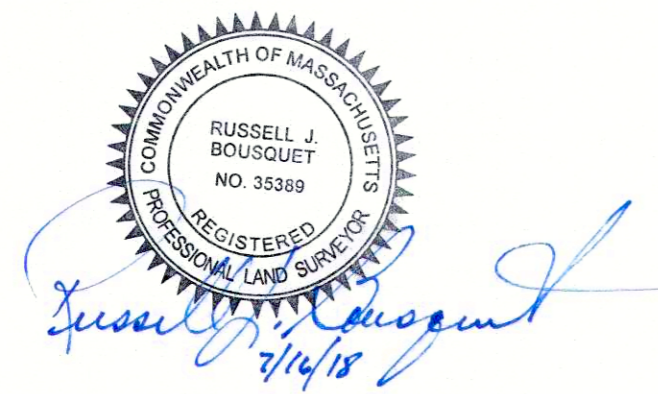 COMMONWEALTH OF MASSACHUSETTS
RUSSELL J.
BOUSQUET
NO. 35389
REGISTERED
PROFESSIONAL LAND SURVEYOR
Russell J. Bousquet
7/16/18